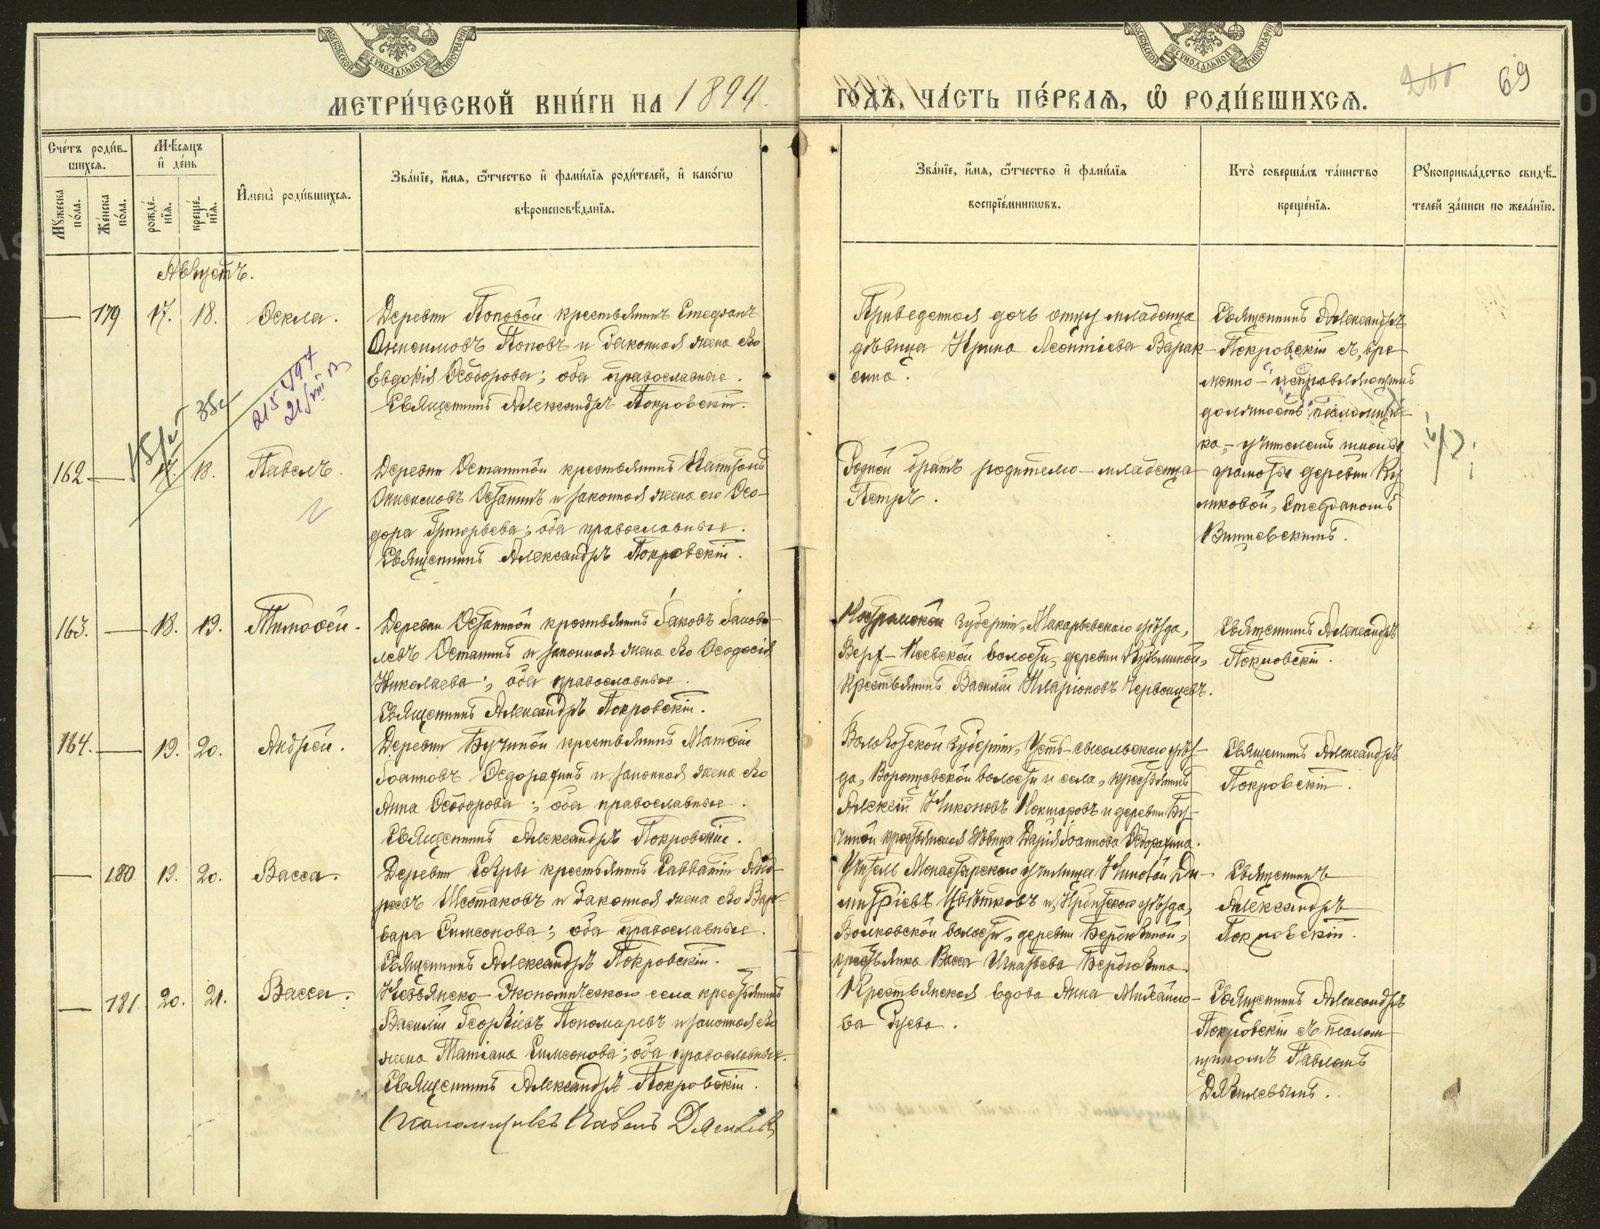 МОСКОВСКОЙ СѴНОДАЛЬНОЙ ТИПОГРАФІИ
МОСКОВСКОЙ СѴНОДАЛЬНОЙ ТИПОГРАФІИ
69
МЕТРИ́ЧЕСКОЙ КНИ́ГИ НА 1894. ГО́ДЪ, ЧА́СТЬ ПЕ́РВАЯ, Ѽ РОДИ́ВШИХСЯ.
Сче́тъ роди́в-
шихся.
Мѣ́сяцъ
и҆ де́нь
И҆мена̀ роди́вшихся.
Зва́нїе, и҆́мя, ѻ҆́тчество и҆ фами́лїя роди́телей, и҆ како́гѡ
вѣроисповѣ́данїя.
Зва́нїе, и҆́мя, ѻ҆́тчество и҆ фами́лїя
воспрїе́мниковъ.
Кто̀ соверша́лъ та́инство
креще́нїя.
Рꙋкоприкла́дство свидѣ́-
телей за́писи по жела́нїю.
Мꙋ́жеска по́ла.
Же́нска по́ла.
рожде́-
нїя.
креще́-
нїя.
Августъ.
179 17. 18. Ѳекла.
Деревни Поповой крестьянинъ Стефанъ
Онисимовъ Поповъ и законная жена его
Евдокія Ѳеодорова; оба православные.
Священникъ Александръ Покровскій.
Приведенная дочь отцу младенца
дѣвица Ирина Леонтіева Варак-
сина.
Священникъ Александръ
Покровскій съ вре-
менно-исправляющимъ
должность псаломщи-
ка,-учителемъ школы
грамоты деревни Ку
ликовой, Стефаномъ
162 17. 18. Павелъ.
Деревни Останиной крестьянинъ
Онисимовъ Останинъ и законная жена его Ѳео-
дора Григорьева; оба православные.
Священникъ Александръ Покровскій.
Родной братъ родителю-младенца
Петръ.
163. 18. 19. Тимоѳей.
Деревни Останиной крестьянинъ Іаковъ Іаковле-
левъ Останинъ и законная жена его Ѳеодосія
Николаева; оба православные.
Священникъ Александръ Покровскій.
Костромской губерніи, Макарьевскаго уѣзда,
волости, деревни
крестьянинъ Василій Иларіоновъ
Священникъ Александръ
Покровскій.
164. 19. 20. Андрей.
Деревни Бучиной крестьянинъ Матѳій
Іоанновъ Ѳедоракинъ и законная жена его
Анна Ѳеодорова; оба православные.
Священникъ Александръ Покровскій.
Вологодской губерніи, Усть-сысольскаго уѣз-
да, волости и села, крестьянинъ
Алексій Никоновъ и деревни Бу-
чиной крестьянская дѣвица Марія Іоаннова Ѳедоракина.
Священникъ Александръ
Покровскій.
180 19. 20. Васса.
Деревни крестьянинъ Савватій Анд-
реевъ Шестаковъ и законная жена его Вар-
вара Симеонова; оба православные.
Священникъ Александръ Покровскій.
Учитель Монастырскаго училища Николай Ди-
митріевъ Цвѣтковъ и, Ирбитскаго уѣзда,
Волковской волости, деревни Бердюгиной,
крестьянка Васса Игнатьева Бердюгина.
Священникъ
Александръ
Покровскій.
181 20. 21. Васса.
Невьянско-Экономическаго села крестьянинъ
Василій Георгіевъ Пономаревъ и законная его
жена Татіана Симеонова; оба православные.
Священникъ Александръ Покровскій.
Псаломщикъ Павелъ Дягилевъ
Крестьянская вдова Анна Михайло-
ва Гусева.
Священникъ Александръ
Покровскій съ псалом-
щикомъ Павломъ
Дягилевымъ.